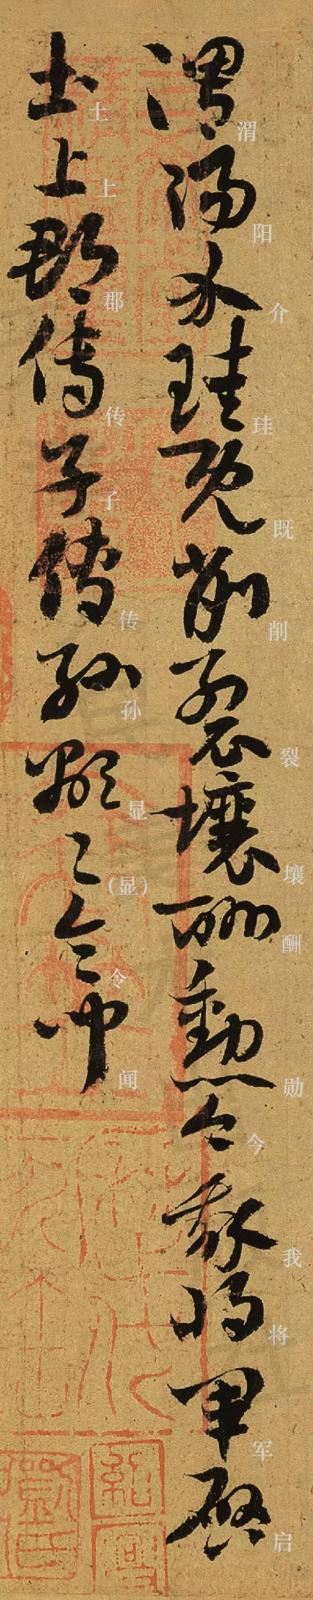 渭阳介珪既削裂壤酬勋今我将军启
土上郡传子传孙显(显)令闻